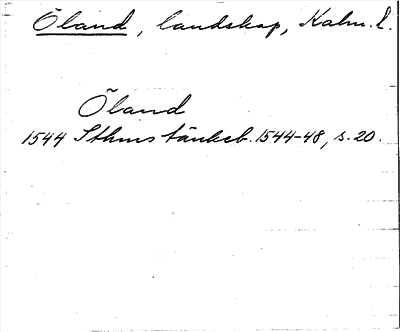 Öland, landskap, Kalm. l.
Öland
1544 Sthms tänkeb. 1544-48, s. 20.